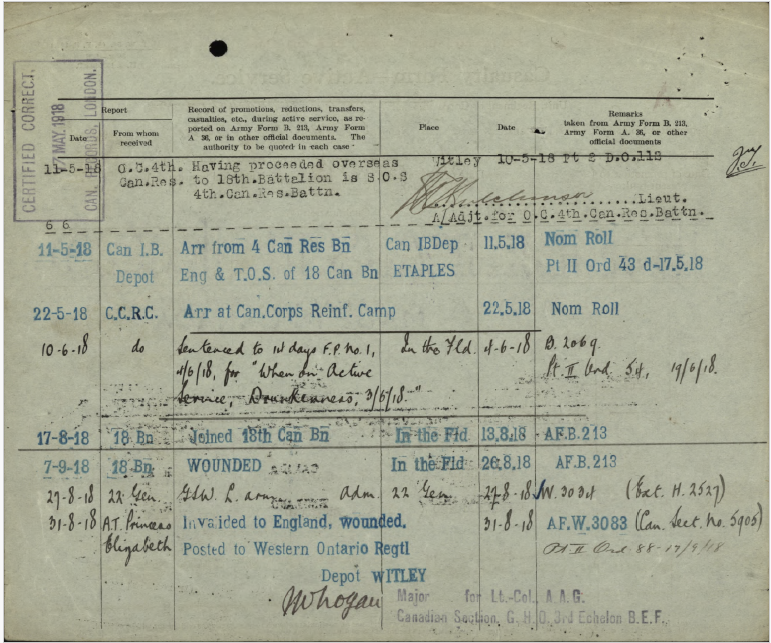 CERTIFIED CORRECT.
MAY.1918
CAN. RECORDS, LONDON.
Report
Date
From whom
received
Record of promotions, reductions, transfers,
casualties, etc., during active service, as re-
ported on Army Form B. 213, Army Form
A 36, or in other official documents. The
authority to be quoted in each case
Place
Date
Remarks
taken from Army Form B. 213,
Army Form A. 36, or other
official documents
11-5-18 O.C.4th. Having proceeded overseas Witley 10-5-18 Pt 2 D.O.112
Can.Res. to 18th.Battalion is S.O.S
4th.Can.Res.Battn. Lieut.
A/Adjt.for O.C.4th.Can.Res.Battn.
66
11-5-18 Can I.B. Arr from 4 Can Res Bn Can IBDep 11.5.18 Nom Roll
Depot Eng & T.O.S. of 18 Can Bn ETAPLES Pt II Ord 43 d-17.5.18
22-5-18 C.C.R.C. Arr at Can.Corps Reinf. Camp 22.5.18 Nom Roll
10-6-18 do Sentenced to 14 days F.P. No. 1, In the Fld. 4-6-18 B. 2069.
4/6/18, for "When on Active Pt. II Ord 54, 19/6/18.
Service, Drunkenness, 3/6/18."
17-8-18 18 Bn Joined 18th Can Bn In the Fld 13.8.18 AF.B.213
7-9-18 18 Bn WOUNDED In the Fld 26.8.18 AF.B.213
27-8-18 22 Gen. GSW. L. arm Adm. 22 Gen 27-8-18 W.3034 (Ext. H. 2527)
31-8-18 A.T. Princess Invalded to England, wounded. 31-8-18 AF.W.3083 (Can. Sect. No. 5905)
Elizabeth Posted to Western Ontario Regtl Pt II Ord 88-17/9/18
Depot WITLEY
Major for Lt.-Col., A.A.G.
Canadian Section, G.H.Q. 3rd Echelon B.E.F.